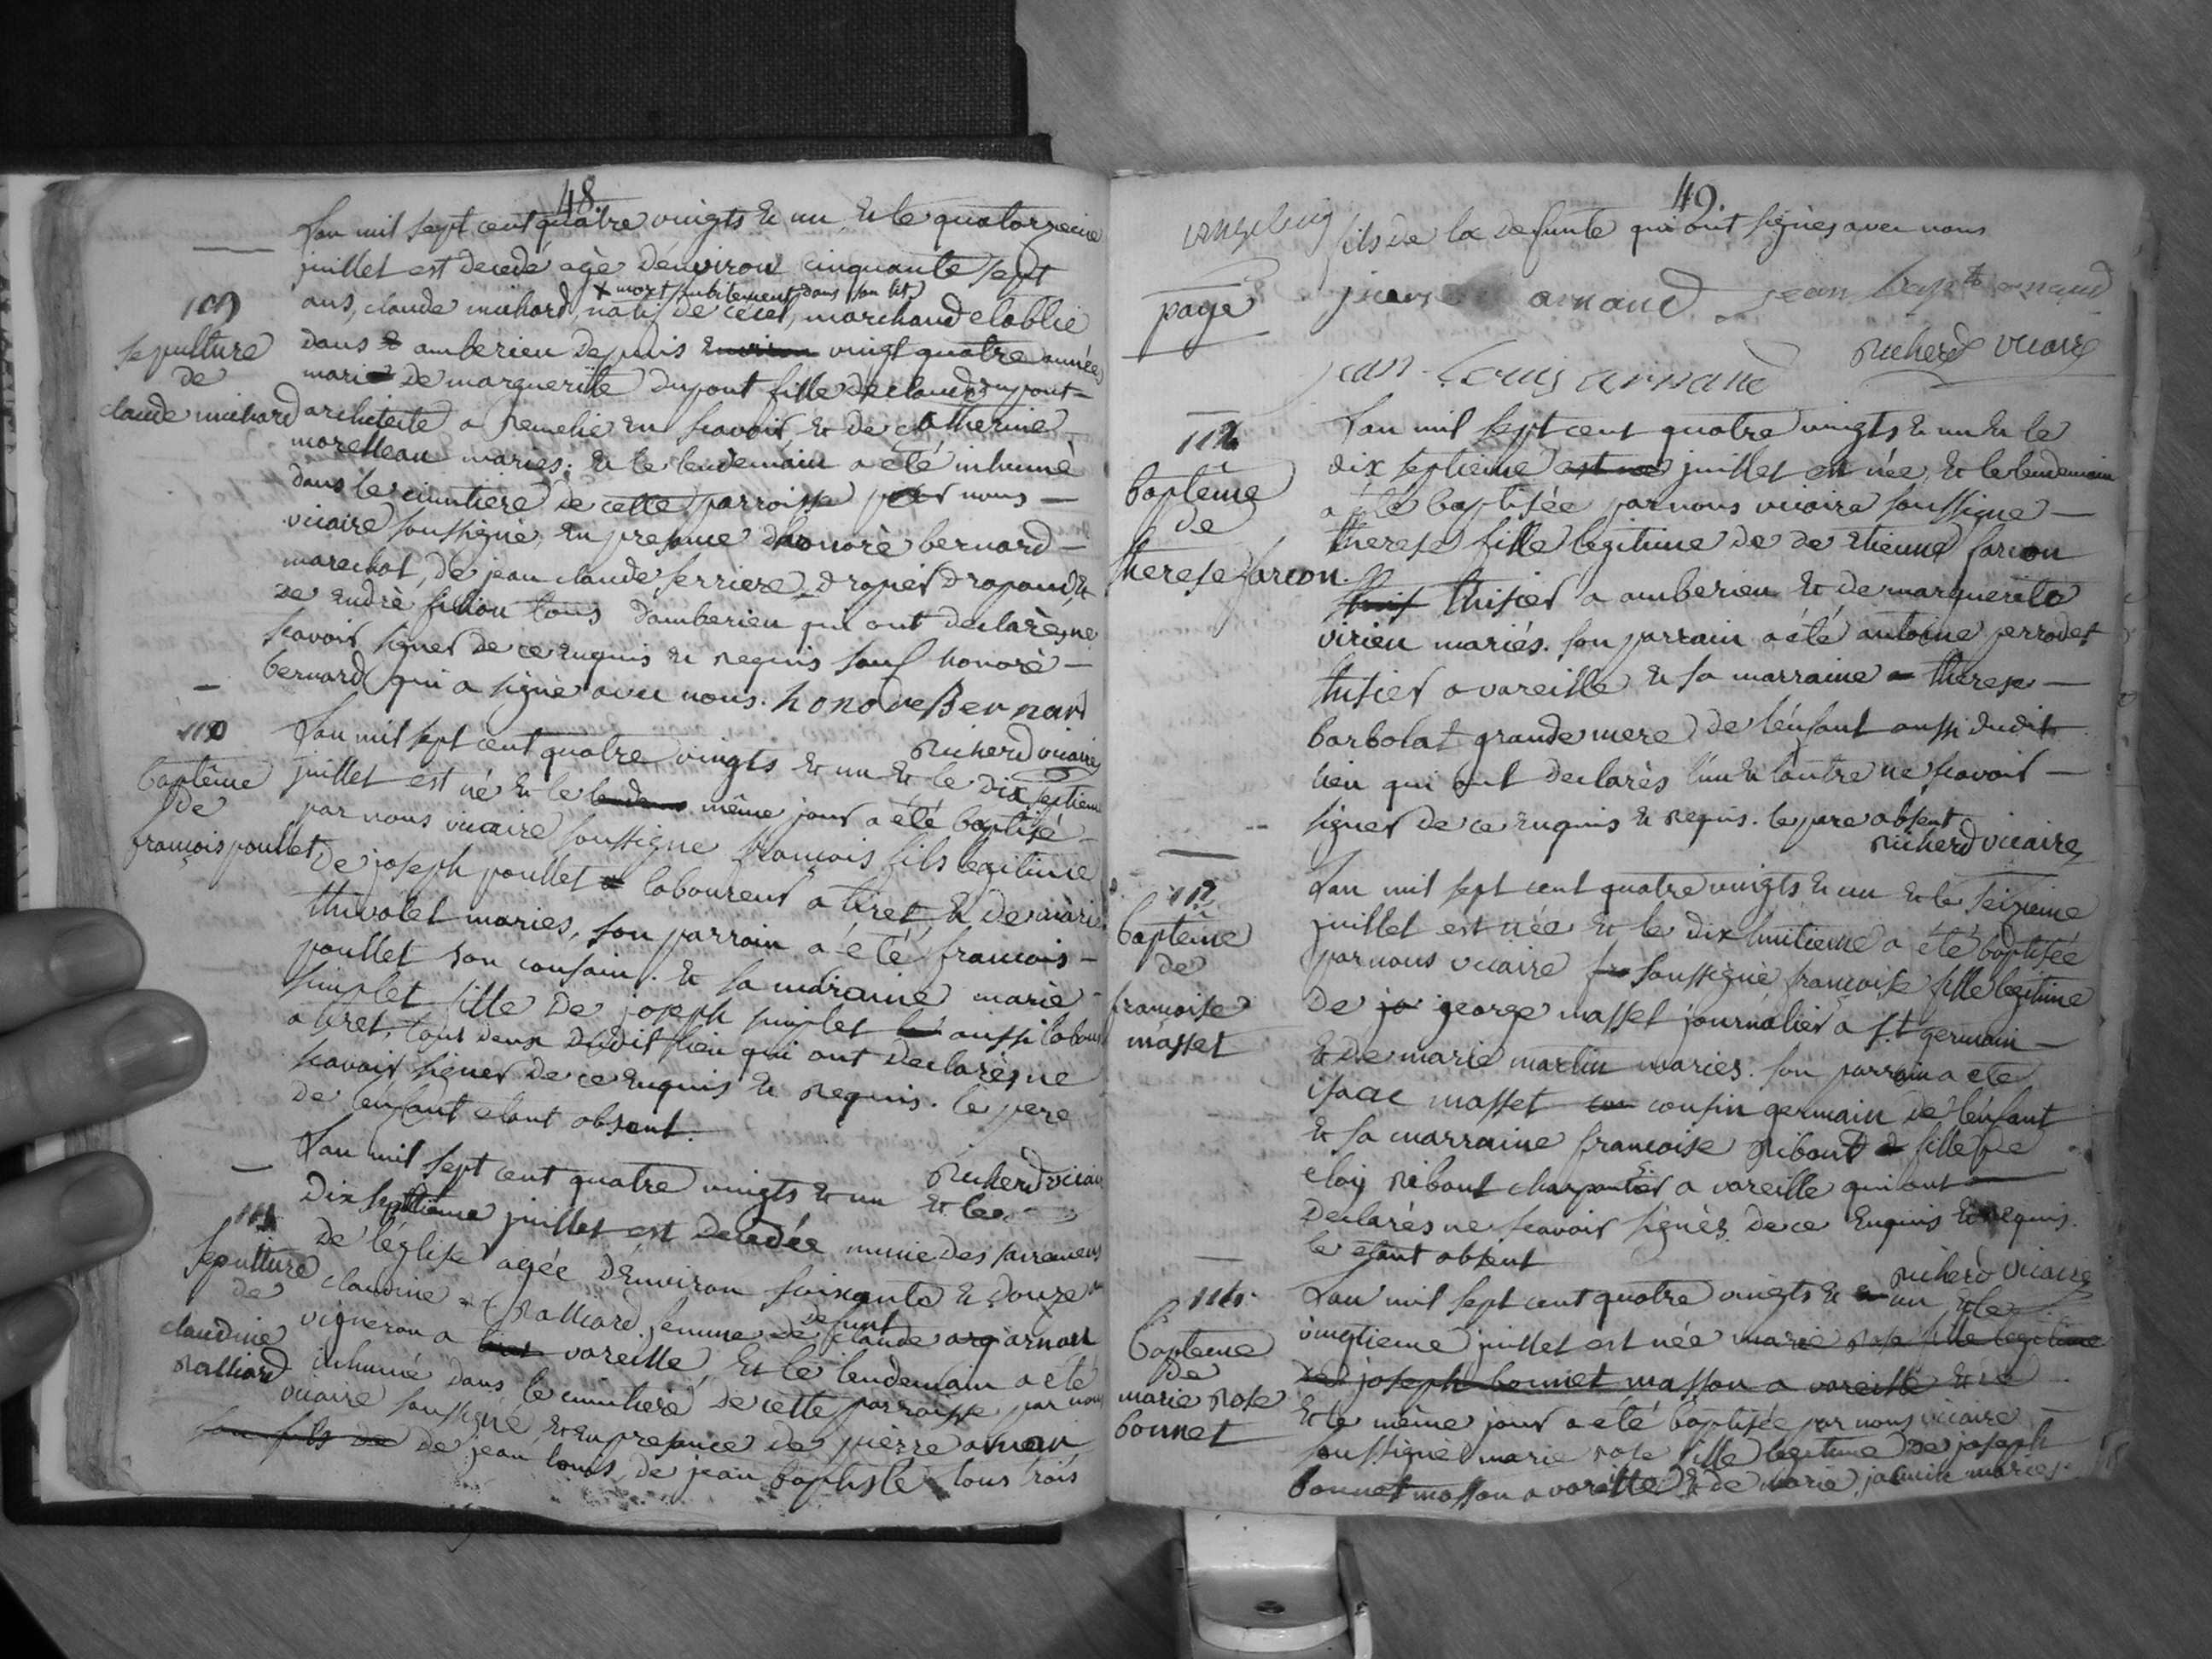 48.
L'an mil sept cent quatre vingts & un & le quatorzieme
juillet est decedé agé d'environ cinquante sept
+ mort subitement dans son lit
ans, claude michard, natif de marchand etablie
109
sepulture
de
claude michard
dans amberieu depuis environ vingt quatre années
mari de marguerite dupont fille de claude dupont
architecte a en savoir, & de catherine
morelleau mariés; & le lendemain a été inhumé
dans le cimetiere de cette parroisse par nous
vicaire soussigné, en presence d'honoré bernard
marechal, de jean claude ferriere drapier drapant, &
de andré tous d'amberieu qui ont declarés ne
scavoir signer de ce enquis & requis sauf honoré
bernard qui a signé avec nous. honore Bernard
Richerd vicaire
110
baptême
de
françois poullet
L'an mil sept cent quatre vingts & un & le dix septieme
juillet est né & le même jour a été baptisé
par nous vicaire soussigné françois fils legitime
de joseph poullet laboureur a tiret, & de marie
thivolet maries, son parrain a été francois
poullet son cousin. & sa maraine marie
simplet fille de joseph simplet aussi labour
a tiret, tous deux dudit lieu qui ont declarés ne
scavoir signer de ce enquis & requis. le pere
de l'enfant etant absent.
Richerd vicaire
111
sepulture
de
claudine
ralliard
L'an mil sept cent quatre vingts & un & le
dix septieme juillet est decedée munie des sacremens
de l'église agée d'environ soixante & douze
claudine ralliard femme de defunt claude arnaud
vigneron a vareille, & le lendemain a été
inhumé dans le cimetiere de cette parroisse par nous
vicaire soussigné & en presence de pierre arnau
son fils de de jean louis, de jean baptiste tous trois
49.
page
fils de la defunte qui ont signés avec nous
arnaud jean bapte arnaud
jean louis arnaud
Richerd vicaire
112
baptême
de
therese farcon.
L'an mil sept cent quatre vingts & un & le
dix septieme est née juillet est née, & le lendemain
a été baptisée par nous vicaire soussigné
therese fille legitime de de etienne farcon
thisier a amberieu & de marguerite
virieu mariés. son parrain a été antoine perrodet
thisier a vareille & sa marraine therese
barbolat grande mere de l'enfant aussi dudit
lieu qui ont declarés l'un & l'autre ne scavoir
signer de ce enquis & requis. le pere absent
Richerd vicaire
113
baptême
de
francoise
masset
L'an mil sept cent quatre vingts & un & le seizieme
juillet est née & le dix huitieme a été baptisée
par nous vicaire soussigné françoise fille legitime
de jo george masset journalier a st germain
& de marie martin maries. son parrain a été
isaac masset cousin germain de l'enfant
& sa marraine francoise Ribout fille de
eloy Ribout charpentier a vareille qui ont
declarés ne scavoir signés de ce enquis & requis.
le etant absent
Richerd vicaire
114.
baptême
de
marie rose
bonnet
L'an mil sept cent quatre vingts & un & le
vingtieme juillet est née marie rose fille legitime
de joseph bonnet masson a vareille & de
& le même jour a été baptisée par nous vicaire
soussigné marie rose fille legitime de joseph
bonnet masson a vareille & de marie mariés.